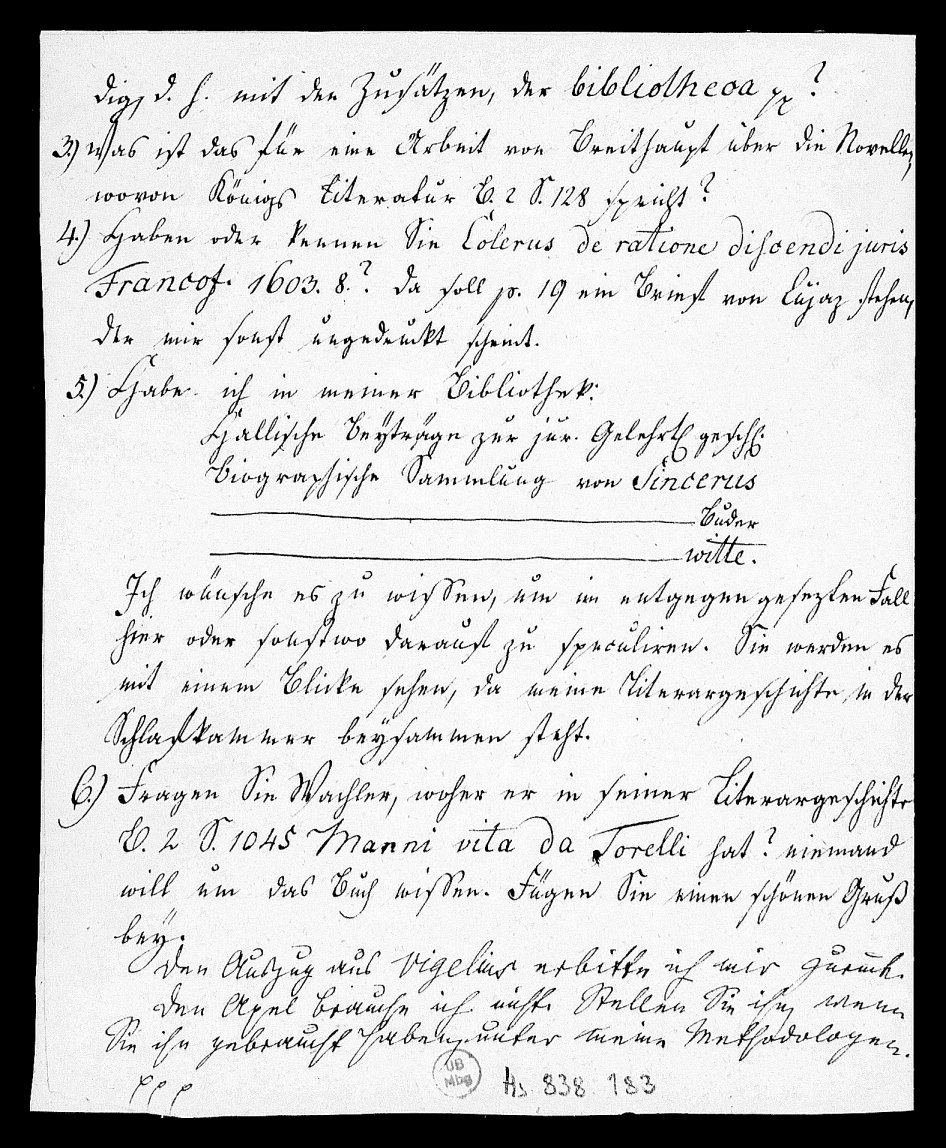 dig, d. h. mit den Zusätzen, der bibliotheca pp?
3.) Was ist das für eine Arbeit von Breithaupt über die Novellen,
wovon Königs Literatur B. 2 S. 128 spricht?
4.) Haben oder kennen Sie Colerus de ratione discendi juris
Francof. 1603. 8.? da soll p. 19 ein Brief von Cujaz stehen,
der mir sonst ungedruckt scheint.
5.) Habe ich in meiner Bibliothek:
Hällische Beyträge zur jur. Gelehrt. gesch.
Biographische Sammlung von Sincerus
Buder
witte.
Ich wünsche es zu wissen, um im entgegen gesezten Fall
hier oder sonstwo darauf zu speculiren. Sie werden es
mit einem Blicke sehen, da meine Literargeschichte in der
Schlafkammer beysammen steht.
6.) Fragen Sie Wachler, woher er in seiner Literargeschichte
B. 2 S. 1045 Manni vita da Torelli hat? niemand
will um das Buch wissen. Fügen Sie einen schönen Gruß
bey.
Den Auszug aus Vigelius erbitte ich mir zurück.
Den Apel brauche ich nicht. Stellen Sie ihn, wenn
Sie ihn gebraucht haben, unter meine Methodologen.
UB
Mbg
Hs 838 183